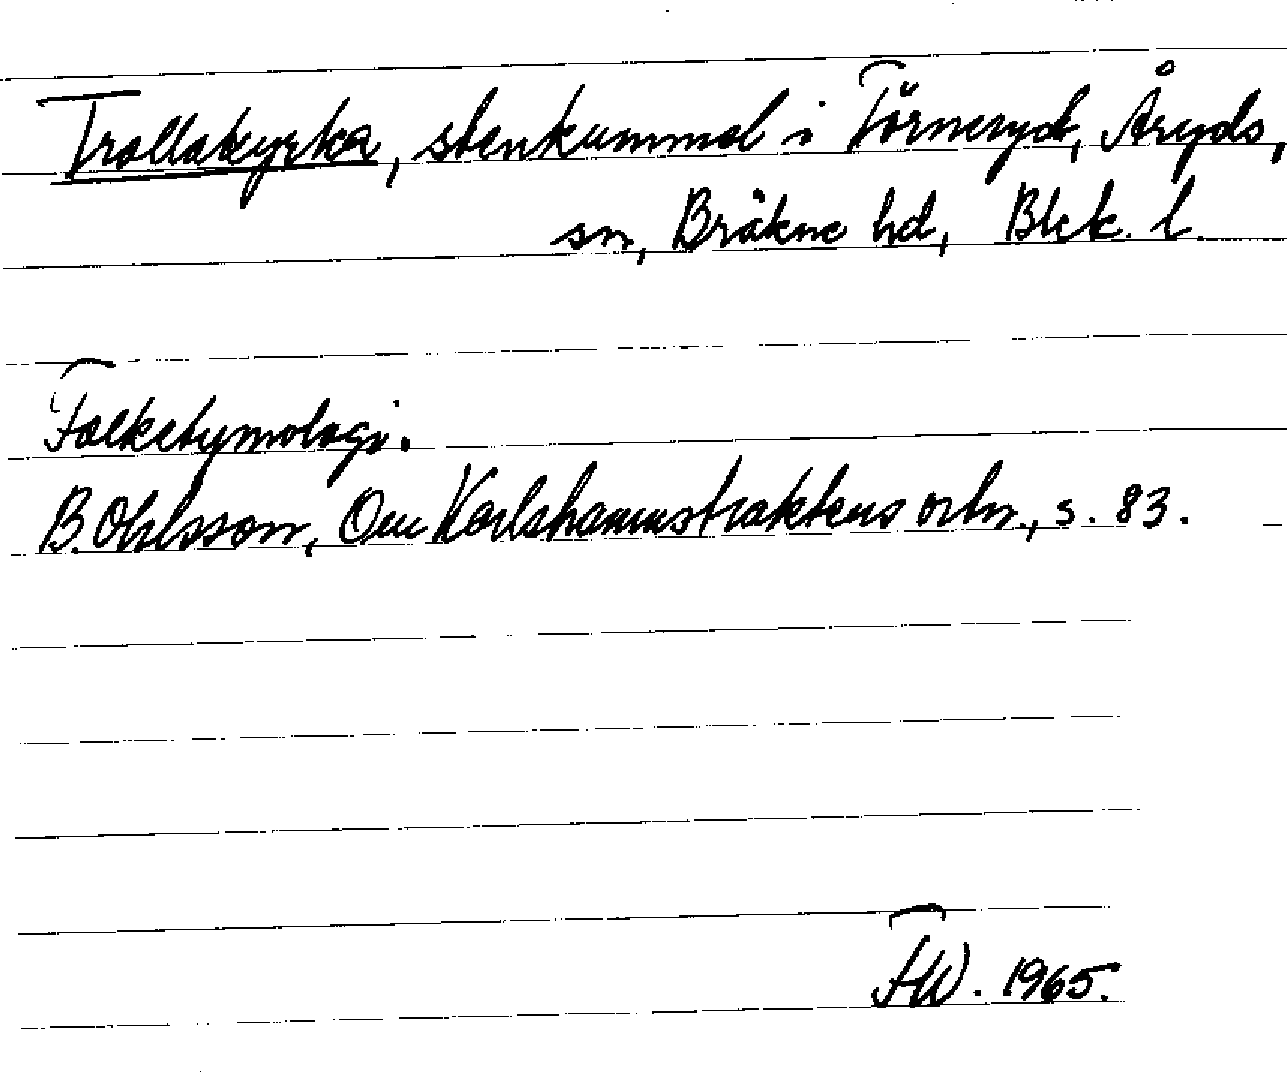 Trollakyrka, stenkummel i Törneryd, Åryds,
sn, Bräkne hd, Blek. l.
Folketymologi.
B. Ohlsson, Om Karlshamnstraktens ortn., s. 83.
FW. 1965.